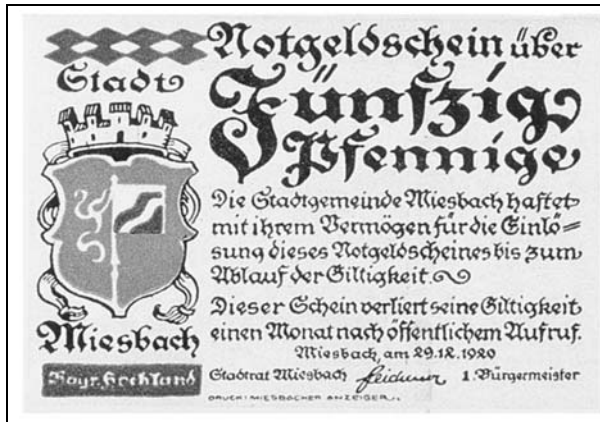 Stadt
Miesbach
Bayr. Hochland
Notgeldschein über
Fünfzig
Pfennige
Die Stadtgemeinde Miesbach haftet
mit ihrem Vermögen für die Einlö=
sung dieses Notgeldscheines bis zum
Ablauf der Giltigkeit.
Dieser Schein verliert seine Giltigkeit
einen Monat nach öffentlichem Aufruf.
Miesbach, am 29.12.1920
Stadtrat Miesbach 1. Bürgermeister
DRUCK: MIESBACHER ANZEIGER.